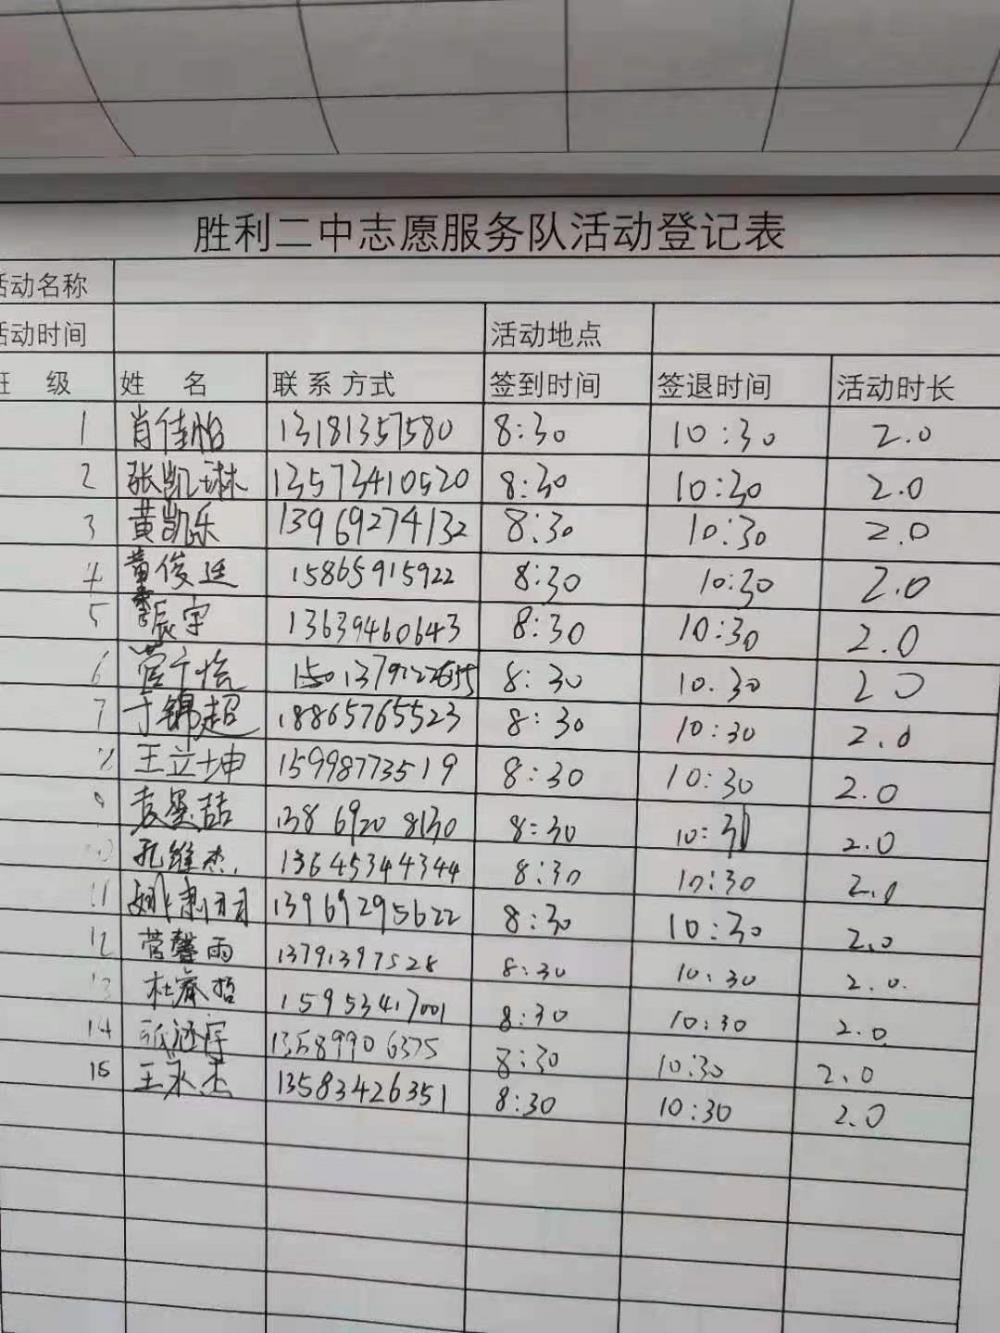 胜利二中志愿服务队活动登记表
活动名称
活动时间 活动地点
班 级 姓 名 联系方式 签到时间 签退时间 活动时长
1 肖佳怡 13181357580 8:30 10:30 2.0
2 张凯琳 13573410520 8:30 10:30 2.0
3 黄凯乐 13969274132 8:30 10:30 2.0
4 黄俊廷 15865915922 8:30 10:30 2.0
5 辰宇 13639460643 8:30 10:30 2.0
6 8:30 10:30 2.0
7 于锦超 18865765523 8:30 10:30 2.0
8 王立坤 15998773519 8:30 10:30 2.0
9 袁昱喆 13869208130 8:30 10:30 2.0
10 孔维杰 13645344344 8:30 10:30 2.0
11 姚 13969295622 8:30 10:30 2.0
12 菅馨雨 13791397528 8:30 10:30 2.0.
13 杜睿哲 15953417001 8:30 10:30 2.0
14 张涵宇 13589906375 8:30 10:30 2.0
15 王永杰 13583426351 8:30 10:30 2.0